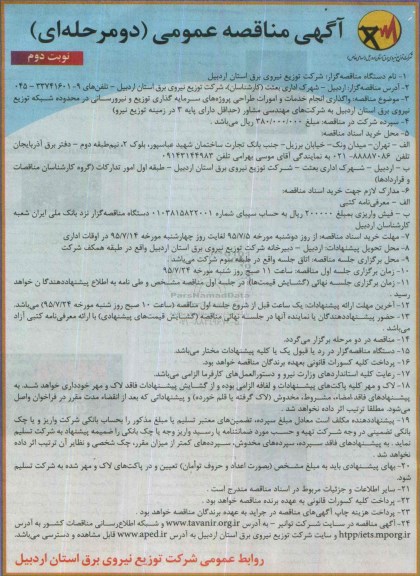 آگهی مناقصه عمومی (دومرحله‌ای)
نوبت دوم
۱- نام دستگاه مناقصه‌گزار: شرکت توزیع نیروی برق استان اردبیل
۲- آدرس مناقصه‌گزار: اردبیل - شهرک اداری بعثت (کارشناسان)، شرکت توزیع نیروی برق استان اردبیل - تلفن‌های ۹-۳۳۷۴۱۶۰۱-۰۴۵
۳- موضوع مناقصه: واگذاری انجام خدمات و امورات طراحی پروژه‌های سرمایه گذاری توزیع و نیرورسانی در محدوده شبکه توزیع
نیروی برق استان اردبیل به شرکت‌های مهندسی مشاور (حداقل دارای پایه ۳ در زمینه توزیع نیرو)
۴- سپرده شرکت در مناقصه: مبلغ ۳۸۰/۰۰۰/۰۰۰ ریال می‌باشد.
۵- محل خرید اسناد مناقصه:
الف - تهران - میدان ونک - خیابان برزیل - جنب بانک تجارت ساختمان شهید عباسپور، بلوک ۲، نیم‌طبقه دوم - دفتر برق آذربایجان
تلفن: ۸۸۸۸۷۰۸۶-۰۲۱ به نمایندگی آقای موسی بهرامی تلفن ۰۹۱۴۳۱۴۴۹۸۳
ب - اردبیل - شهرک اداری بعثت - شرکت توزیع نیروی برق استان اردبیل - طبقه اول امور تدارکات (گروه کارشناسان مناقصات
و قراردادها)
۶- مدارک لازم جهت خرید اسناد مناقصه:
الف - معرفی‌نامه کتبی
ب - فیش واریزی بمبلغ ۲۰۰۰۰۰ ریال به حساب سیبای شماره ۰۱۰۴۸۱۵۸۲۲۰۰۱ دستگاه مناقصه‌گزار نزد بانک ملی ایران شعبه
کارشناسان اردبیل
۷- مهلت خرید اسناد مناقصه: از روز دوشنبه مورخه ۹۵/۷/۵ لغایت روز چهارشنبه مورخه ۹۵/۷/۱۴ در اوقات اداری
۸- محل تحویل پیشنهادات: اردبیل - دبیرخانه شرکت توزیع نیروی برق استان اردبیل واقع در طبقه همکف شرکت
۹- محل برگزاری جلسه مناقصه: اتاق جلسه واقع در طبقه سوم شرکت می‌باشد.
۱۰- زمان برگزاری جلسه اول مناقصه: ساعت ۱۱ صبح روز شنبه مورخه ۹۵/۷/۲۴
۱۱- زمان برگزاری جلسه نهائی (گشایش قیمت‌ها): در جلسه اول مناقصه مشخص و طی نامه به اطلاع پیشنهاددهندگان خواهد
رسید.
۱۲- آخرین مهلت ارائه پیشنهادات: یک ساعت قبل از شروع جلسه اول مناقصه (ساعت ۱۰ صبح روز شنبه مورخه ۹۵/۷/۲۴) می‌باشد.
۱۳- حضور پیشنهاددهندگان یا نماینده آنها در جلسه نهائی مناقصه (گشایش قیمت‌های پیشنهادی) با ارائه معرفی‌نامه کتبی آزاد
می‌باشد.
۱۴- مناقصه در دو مرحله برگزار می‌گردد.
۱۵- دستگاه مناقصه‌گزار در رد یا قبول یک یا کلیه پیشنهادات مختار می‌باشد.
۱۶- پرداخت کلیه کسورات قانونی بعهده برندگان مناقصه خواهد بود.
۱۷- رعایت کلیه استانداردهای وزارت نیرو و دستورالعمل‌های کارفرما الزامی می‌باشد.
۱۸- لاک و مهر کلیه پاکت‌های پیشنهادات و لفافه الزامی بوده و از گشایش پیشنهادات فاقد لاک و مهر خودداری خواهد شد. به
پیشنهادهای فاقد امضاء، مشروط، مخدوش (لاک گرفته یا قلم خورده) و پیشنهاداتی که بعد از انقضاء مدت مقرر در فراخوان واصل
می‌شود. مطلقا ترتیب اثر داده نخواهد شد.
۱۹- پیشنهاددهنده مکلف است معادل مبلغ سپرده، تضمین‌های معتبر تسلیم یا مبلغ مذکور را بحساب بانکی شرکت واریز و یا چک
بانکی تضمینی در وجه شرکت تهیه و حسب مورد ضمانتنامه یا رسید واریز وجه یا چک بانکی را ضمیمه پیشنهاد به شرکت تسلیم
نماید. به پیشنهادهای فاقد سپرده، سپرده‌های مخدوش، سپرده‌های کمتر از میزان مقرر، چک شخصی و نظایر آن ترتیب اثر داده
نخواهد شد
۲۰- بهای پیشنهادی باید به مبلغ مشخص (بصورت اعداد و حروف توأمان) تعیین و در پاکت‌های لاک و مهر شده به شرکت تسلیم
شود.
۲۱- سایر اطلاعات و جزئیات مربوط در اسناد مناقصه مندرج است.
۲۲- پرداخت کلیه کسورات قانونی به عهده برنده مناقصه خواهد بود.
۲۳- پرداخت هزینه چاپ آگهی‌های مناقصه در جراید به عهده برندگان مناقصه خواهد بود.
۲۴- آگهی مناقصه در سایت شرکت توانیر - به آدرس www.tavanir.org.ir و شبکه اطلاع‌رسانی مناقصات کشور به آدرس
http/iets.mporg.ir و سایت شرکت توزیع نیروی برق استان اردبیل به آدرس www.aped.ir قابل مشاهده و دسترسی می‌باشد.
روابط عمومی شرکت توزیع نیروی برق استان اردبیل